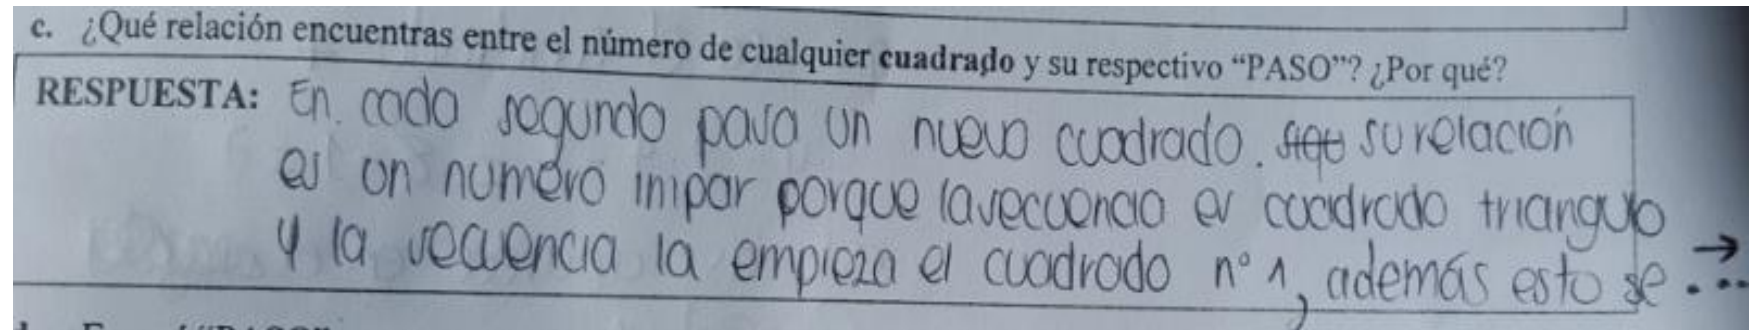 c. ¿Qué relación encuentras entre el número de cualquier cuadrado y su respectivo “PASO”? ¿Por qué?
RESPUESTA: En cada segundo pasa un nuevo cuadrado. su relación
es un numéro inipar porque la secuencia es cuadrado triangulo
y la secuencia la empieza el cuadrado n° 1, además esto se ...